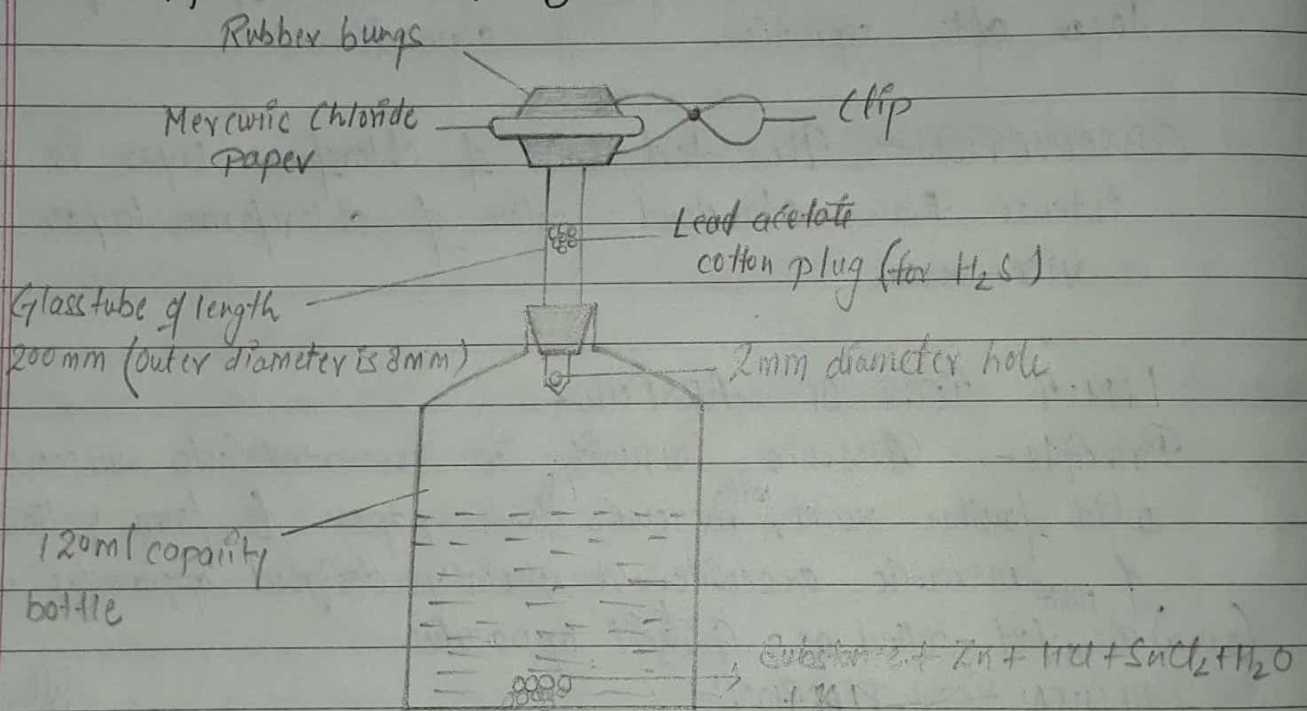 Rubber bungs
Mercuric Chloride
paper
Clip
Lead acetate
cotton plug (for H₂S)
Glass tube of length
200mm (outer diameter is 8mm)
2mm diameter hole
120ml capacity
bottle
+ Zn + HCl + SnCl₂ + H₂O